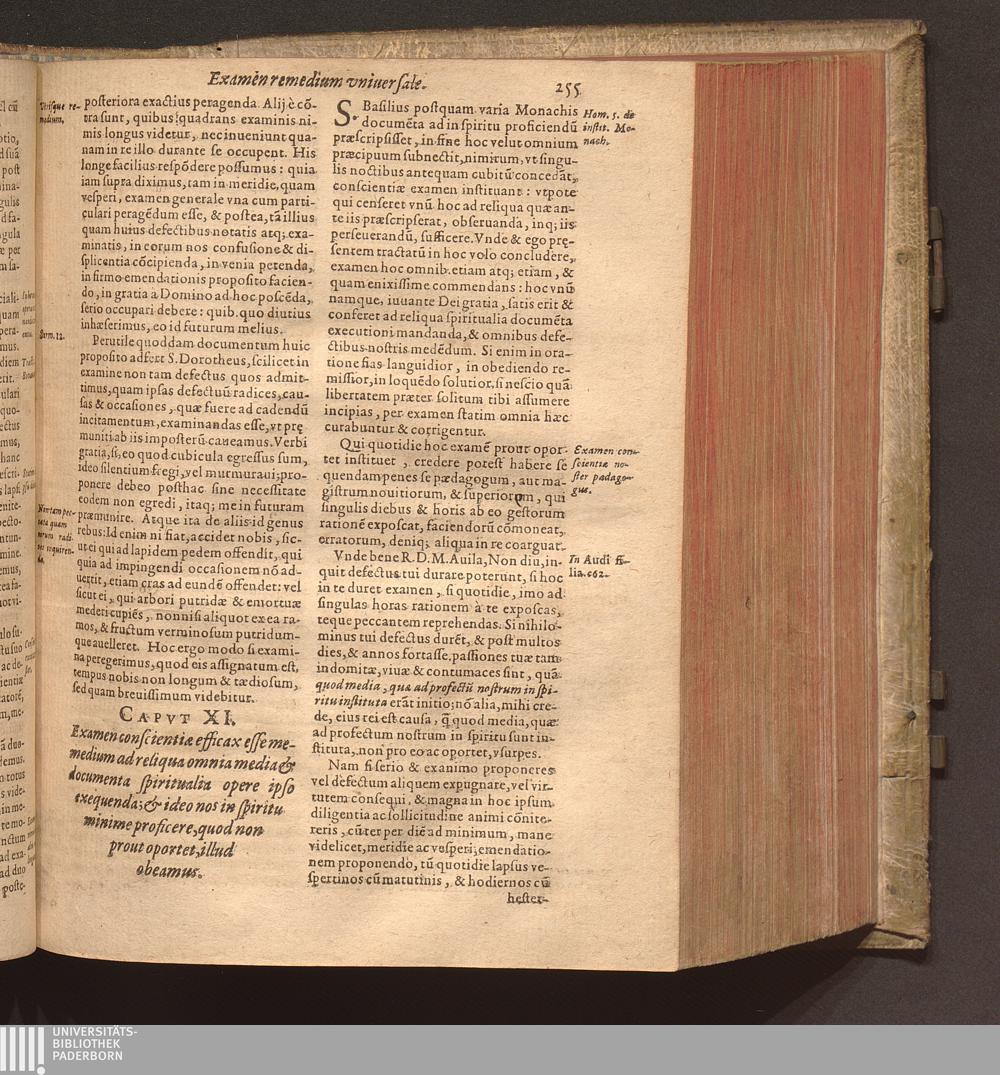 Examen remedium vniuersale.
255
Vtrisque re-
medium.
posteriora exactius peragenda. Alij è cō-
tra sunt, quibus quadrans examinis ni-
mis longus videtur, nec inueniunt qua-
nam in re illo durante se occupent. His
longe facilius respōdere possumus: quia
iam supra diximus, tam in meridie, quam
vesperi, examen generale vna cum parti-
culari peragēdum esse, & postea, tā illius
quam huius defectibus notatis atq; exa-
minatis, in eorum nos confusione & di-
splicentia cōcipienda, in venia petenda,
in firmo emendationis proposito facien-
do, in gratia a Domino ad hoc poscēda,
serio occupari debere: quib. quo diutius
inhæserimus, eo id futurum melius.
Serm. 12.
Perutile quoddam documentum huic
proposito adfert S. Dorotheus, scilicet in
examine non tam defectus quos admit-
timus, quam ipsas defectuū radices, cau-
sas & occasiones, quæ fuere ad cadendū
incitamentum, examinandas esse, vt pre
muniti ab iis imposterū caueamus. Verbi
gratia, si, eo quod cubicula egressus sum,
ideo silentium fregi, vel murmuraui; pro-
ponere debeo posthac sine necessitate
eodem non egredi, itaq; me in futuram
præmunire. Atque ita de aliis id genus
rebus: Id enim ni fiat, accidet nobis, sic-
ut ei qui ad lapidem pedem offendit, qui
quia ad impingendi occasionem nō ad-
uertit, etiam cras ad eundē offendet: vel
sicut ei, qui arbori putridæ & emortuæ
mederi cupiēs, nonnisi aliquot ex ea ra-
mos, & fructum verminosum putridum-
que auelleret. Hoc ergo modo si exami-
na peregerimus, quod eis assignatum est,
tempus nobis non longum & tædiosum,
sed quam breuissimum videbitur.
Non tam pec-
cata quam
eorum radi-
ces requiren-
CAPVT XI.
Examen conscientiæ efficax esse me-
medium ad reliqua omnia media &
documenta spiritualia opere ipso
exequenda; & ideo nos in spiritu
minime proficere, quod non
prout oportet, illud
obeamus.
S. Basilius postquam varia Monachis
documēta ad in spiritu proficiendū
præscripsisset, in fine hoc velut omnium
præcipuum subnectit, nimirum, vt singu-
lis noctibus antequam cubitū concedāt,
conscientiæ examen instituant: vtpote
qui censeret vnū hoc ad reliqua quæ an-
te iis præscripserat, obseruanda, inq; iis
perseuerandū, sufficere. Vnde & ego pre-
sentem tractatū in hoc volo concludere,
examen hoc omnib. etiam atq; etiam, &
quam enixissime commendans: hoc vnū
namque, iuuante Dei gratia, satis erit &
conferet ad reliqua spiritualia documēta
executioni mandanda, & omnibus defe-
ctibus nostris medēdum. Si enim in ora-
tione fias languidior, in obediendo re-
missior, in loquēdo solutior, si nescio quā
libertatem præter solitum tibi assumere
incipias, per examen statim omnia hæc
curabuntur & corrigentur.
Hom. 5. de
instit. Mo-
nach.
Qui quotidie hoc examē prout opor-
tet instituet, credere potest habere se
quendam penes se pædagogum, aut ma-
gistrum nouitiorum, & superiorem, qui
singulis diebus & horis ab eo gestorum
rationē exposcat, faciendorū cōmoneat,
erratorum, deniq; aliqua in re coarguat.
Examen con-
scientiæ no-
ster pædago-
gus.
Vnde bene R.D.M. Auila, Non diu, in-
quit defectus tui durare poterunt, si hoc
in te duret examen, si quotidie, imo ad
singulas horas rationem à te exposcas,
teque peccantem reprehendas. Si nihilo-
minus tui defectus durēt, & post multos
dies, & annos fortasse, passiones tuæ tam
indomitæ, viuæ & contumaces sint, quā
quod media, quæ ad profectū nostrum in spi-
ritu instituta erāt initio; nō alia, mihi cre-
de, eius rei est causa, q̄ quod media, quæ
ad profectum nostrum in spiritu sunt in-
stituta, non pro eo ac oportet, vsurpes.
In Audi fi-
lia. c62.
Nam si serio & ex animo proponeres
vel defectum aliquem expugnare, vel vir-
tutem consequi, & magna in hoc ipsum
diligentia ac sollicitudine animi cōnite-
reris, cū ter per diē ad minimum, mane
videlicet, meridie ac vesperi; emendatio-
nem proponendo, tū quotidie lapsus ve-
spertinos cū matutinis, & hodiernos cū
hester-
UNIVERSITÄTS-
BIBLIOTHEK
PADERBORN